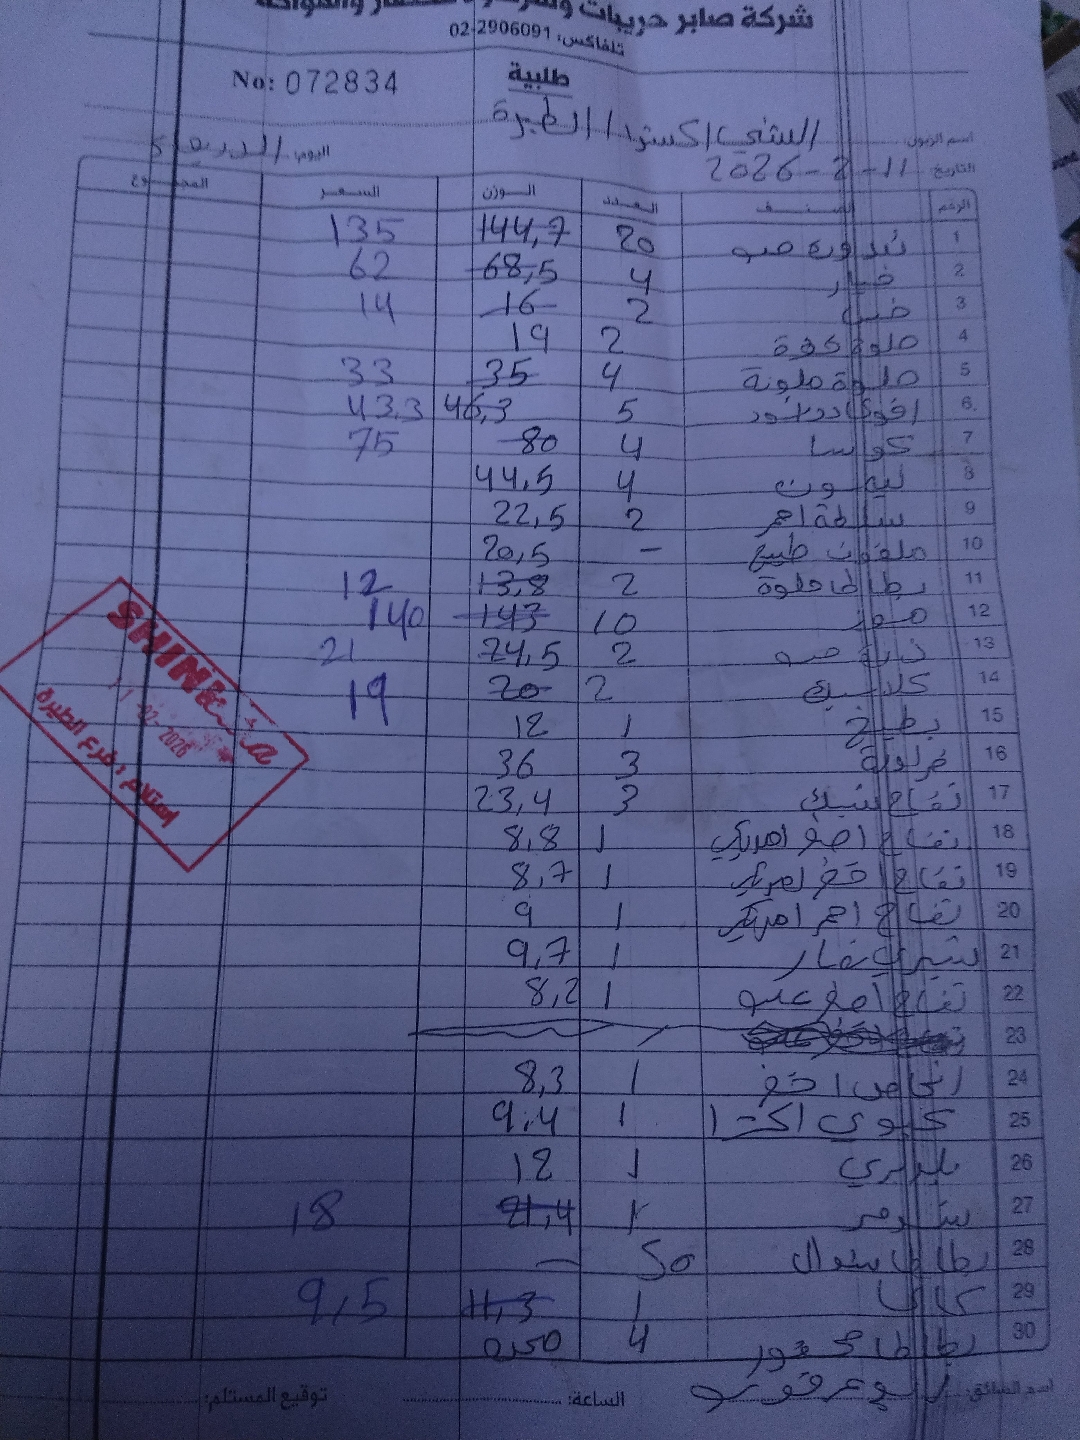 شركة صابر حريبات وشركاؤه للخضار والفواكه
تلفاكس: 02-2906091
طلبية
No: 072834
اسم الزبون: الشني اكسترا / الطيرة
اليوم: الاربعاء
التاريخ 11-2-2026
الرقم الصنف العدد الوزن السعر المجموع
1 بندورة حب 20 144,7 135
2 خيار 4 68,5 62
3 خس 2 16 14
4 2 19
5 ملونة 4 35 33
6 افوكادو 5 46,3 43.3
7 كوسا 4 80 75
8 ليمون 4 44,5
9 احمر 2 22,5
10 ملفوف طبيخ - 20,5
11 بطاطا حلوة 2 13,8 12
12 موز 10 143 140
13 2 24,5 21
14 2 20 19
15 بطيخ 1 12
16 فراولة 3 36
17 تفاح 3 23,4
18 تفاح اصفر امريكي 1 8,8
19 تفاح اخضر امريكي 1 8,7
20 تفاح احمر امريكي 1 9
21 1 9,7
22 تفاح اصفر 1 8,2
23
24 انجاص اخضر 1 8,3
25 كيوي اكسترا 1 9,4
26 بلو بري 1 12
27 شومر 21,4 18
28 بطاطا شوال 50 —
29 كاكا 1 11,3 9,5
30 بطاطا 4
اسم السائق:
الساعة:
توقيع المستلم:
SHINI
11-02-2026
استلام : فرع الطيرة